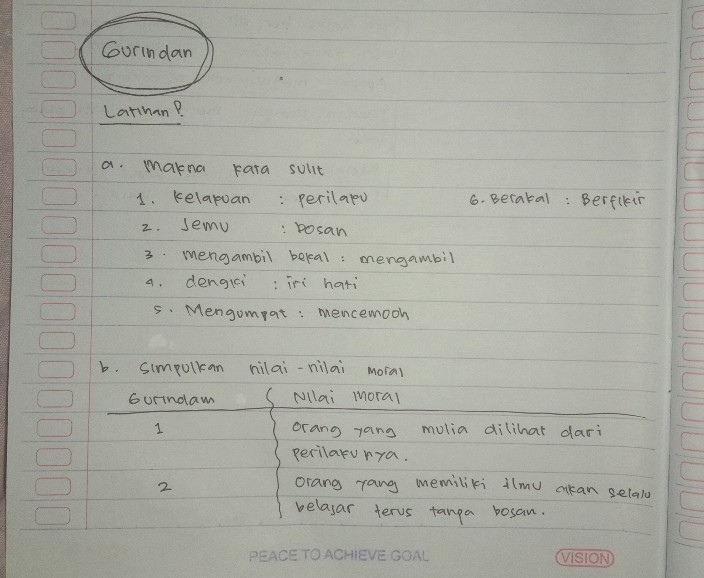 Gurindan
Latihan?
a. Makna kata sulit
1. Kelakuan : perilaku
6. Berakal : Berfikir
2. Jemu : bosan
3. mengambil bekal : mengambil
4. dengki : iri hati
5. Mengumpat : mencemooh
b. Simpulkan nilai-nilai moral
Gurindam Nilai moral
1 orang yang mulia dilihat dari
perilakunya.
2 orang yang memiliki ilmu akan selalu
belajar terus tanpa bosan.
PEACE TO ACHIEVE GOAL
VISION